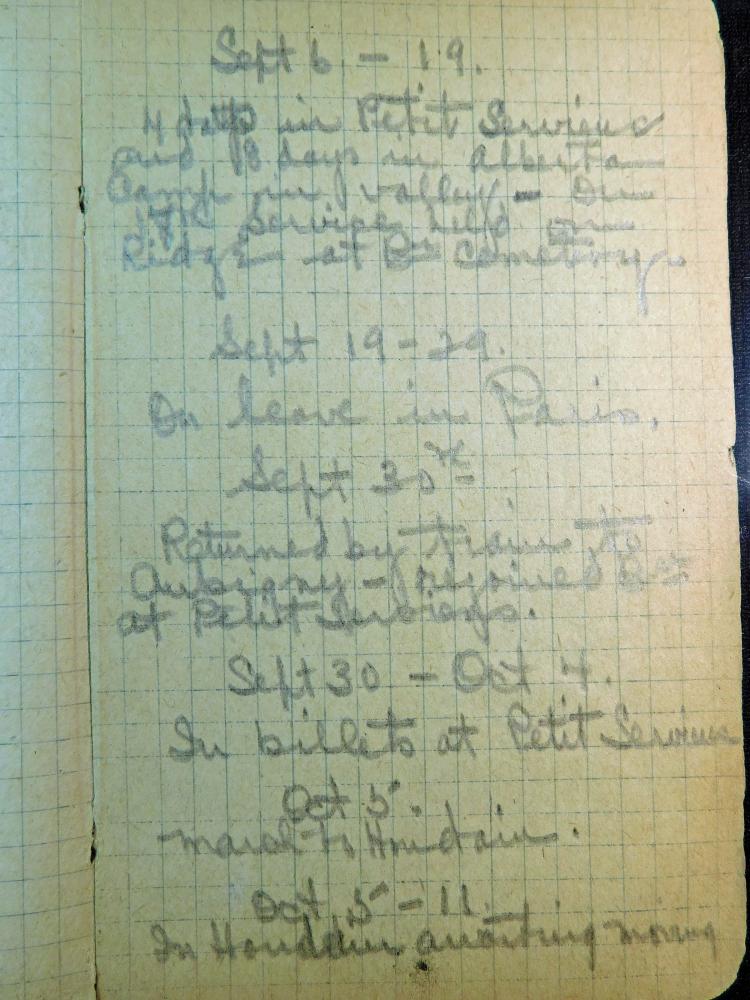 Sept 6 - 19.
4 days in Petit Servins
and 8 days in Alberta
Camp in valley - On
service held on
Ridge at Bn Cemetery.
Sept 19 - 29.
On leave in Paris.
Sept 30th
Returned by train to
Aubigny - rejoined Bn
at Petit Servins.
Sept 30 - Oct 4.
In billets at Petit Servins
Oct 5.
March to Houdain.
Oct 5 - 11.
In Houdain awaiting moving